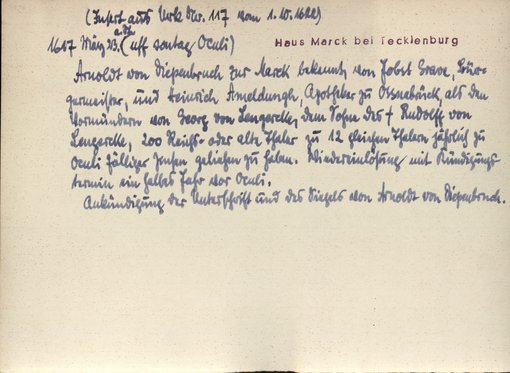 (Insert aus Urk Nr. 117 vom 1.10.1622)
a. St.
1617 März 23. (uff sontag Oculi)
Haus Marck bei Tecklenburg
Arnoldt von Diepenbruch zur Marck bekennt, von Jobst Grave, Bür-
germeister, und Heinrich Ameldungh, Apotheker zu Ossnabrück, als den
Vormündern von Georg von Lengercke, dem Sohne des + Rudolff von
Lengercke, 200 Reichs- oder alte Thaler zu 12 gleichen Thalern jährlich zu
Oculi fälliger Zinsen geliehen zu haben. Wiedereinlösung mit Kündigungs-
termin ein halbes Jahr vor Oculi.
Ankündigung der Unterschrift und des Siegels von Arnoldt von Diepenbruch.